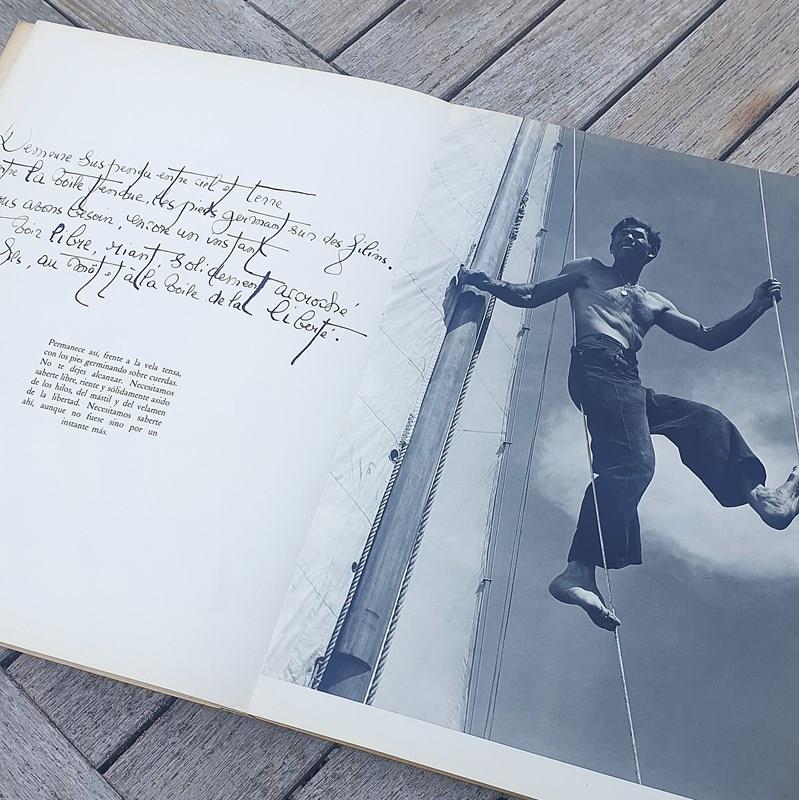 Demeure suspendu entre ciel et terre
la voile tendue, les pieds germant sur des filins.
avons besoin, encore un instant
libre, riant, solidement accroché
au mât et à la voile de la liberté.
Permanece así, frente a la vela tensa,
con los pies germinando sobre cuerdas.
No te dejes alcanzar. Necesitamos
saberte libre, riente y sólidamente asido
de los hilos, del mástil y del velamen
de la libertad. Necesitamos saberte
ahí, aunque no fuese sino por un
instante más.